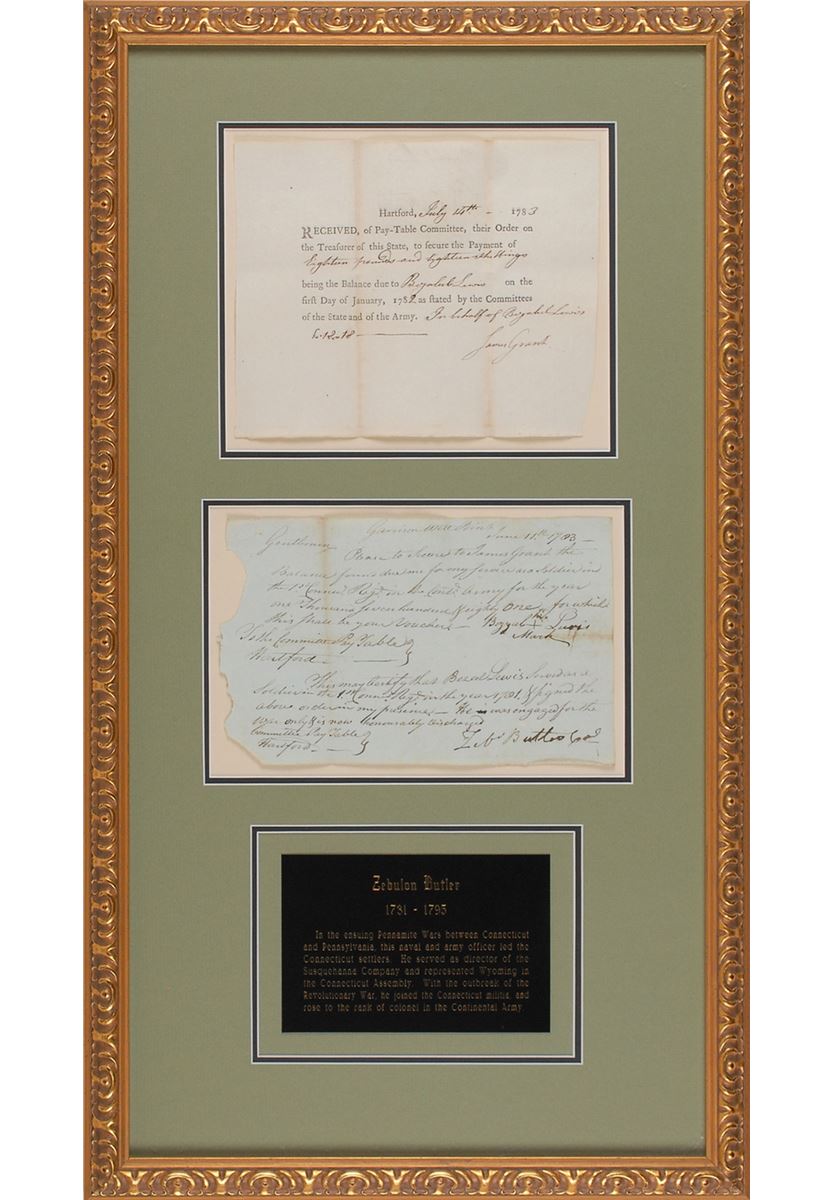 Hartford, July 14th - 1783
RECEIVED, of Pay-Table Committee, their Order on
the Treasurer of this State, to secure the Payment of
Eighteen pounds and Eighteen shillings
being the Balance due to Bezaleel Lewis on the
first Day of January, 1782 as stated by the Committees
of the State and of the Army. In behalf of Bezalel Lewis
James Grant
Garrison West Point
June 11th 1783
Gentlemen
Please to secure to James Grant the
Balance due me for my service as a Soldier in
the 1st Connect Regt in the Contl Army for the year
one Thousand Seven hundred & eighty One, for which
this shall be your Voucher - his
To the Committee Pay Table Lewis
Hartford Mark
This may Certify that Bezeel Lewis Served as a
Soldier in the 1st Connt Regt in the year 1781, & signed the
above order in my presence - He was engaged for the
war only & is now honourably discharged
Committee Pay Table Zebn Butler Col
Hartford
Zebulon Butler
1731 - 1795
In the ensuing Pennamite Wars between Connecticut
and Pennsylvania, this naval and army officer led the
Connecticut settlers. He served as director of the
Susquehanna Company and represented Wyoming in
the Connecticut Assembly. With the outbreak of the
Revolutionary War, he joined the Connecticut militia, and
rose to the rank of colonel in the Continental Army.